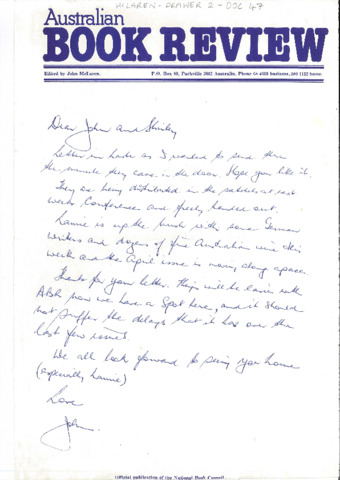 McLAREN - DRAWER 2 - DOC 47
Australian
BOOK REVIEW
Edited by John McLaren. P.O. Box 89, Parkville 3052 Australia. Phone
Dear John and Shirley
Letter in haste as I wanted to send this
the minute they came in the door. Hope you like it.
They are being distributed in the satchels at next
week's Conference and freely handed out.
Laurie is up the with some German
writers and dozens of fine Australian wine this
week and the April issue is moving along apace.
Thanks for your letter. Things will be easier with
ABR now we have a spot here, and it should
not suffer the delays that it has over the
last few issues.
We all look forward to seeing you home
(especially Laurie)
Love
John.
Official publication of the National Book Council.